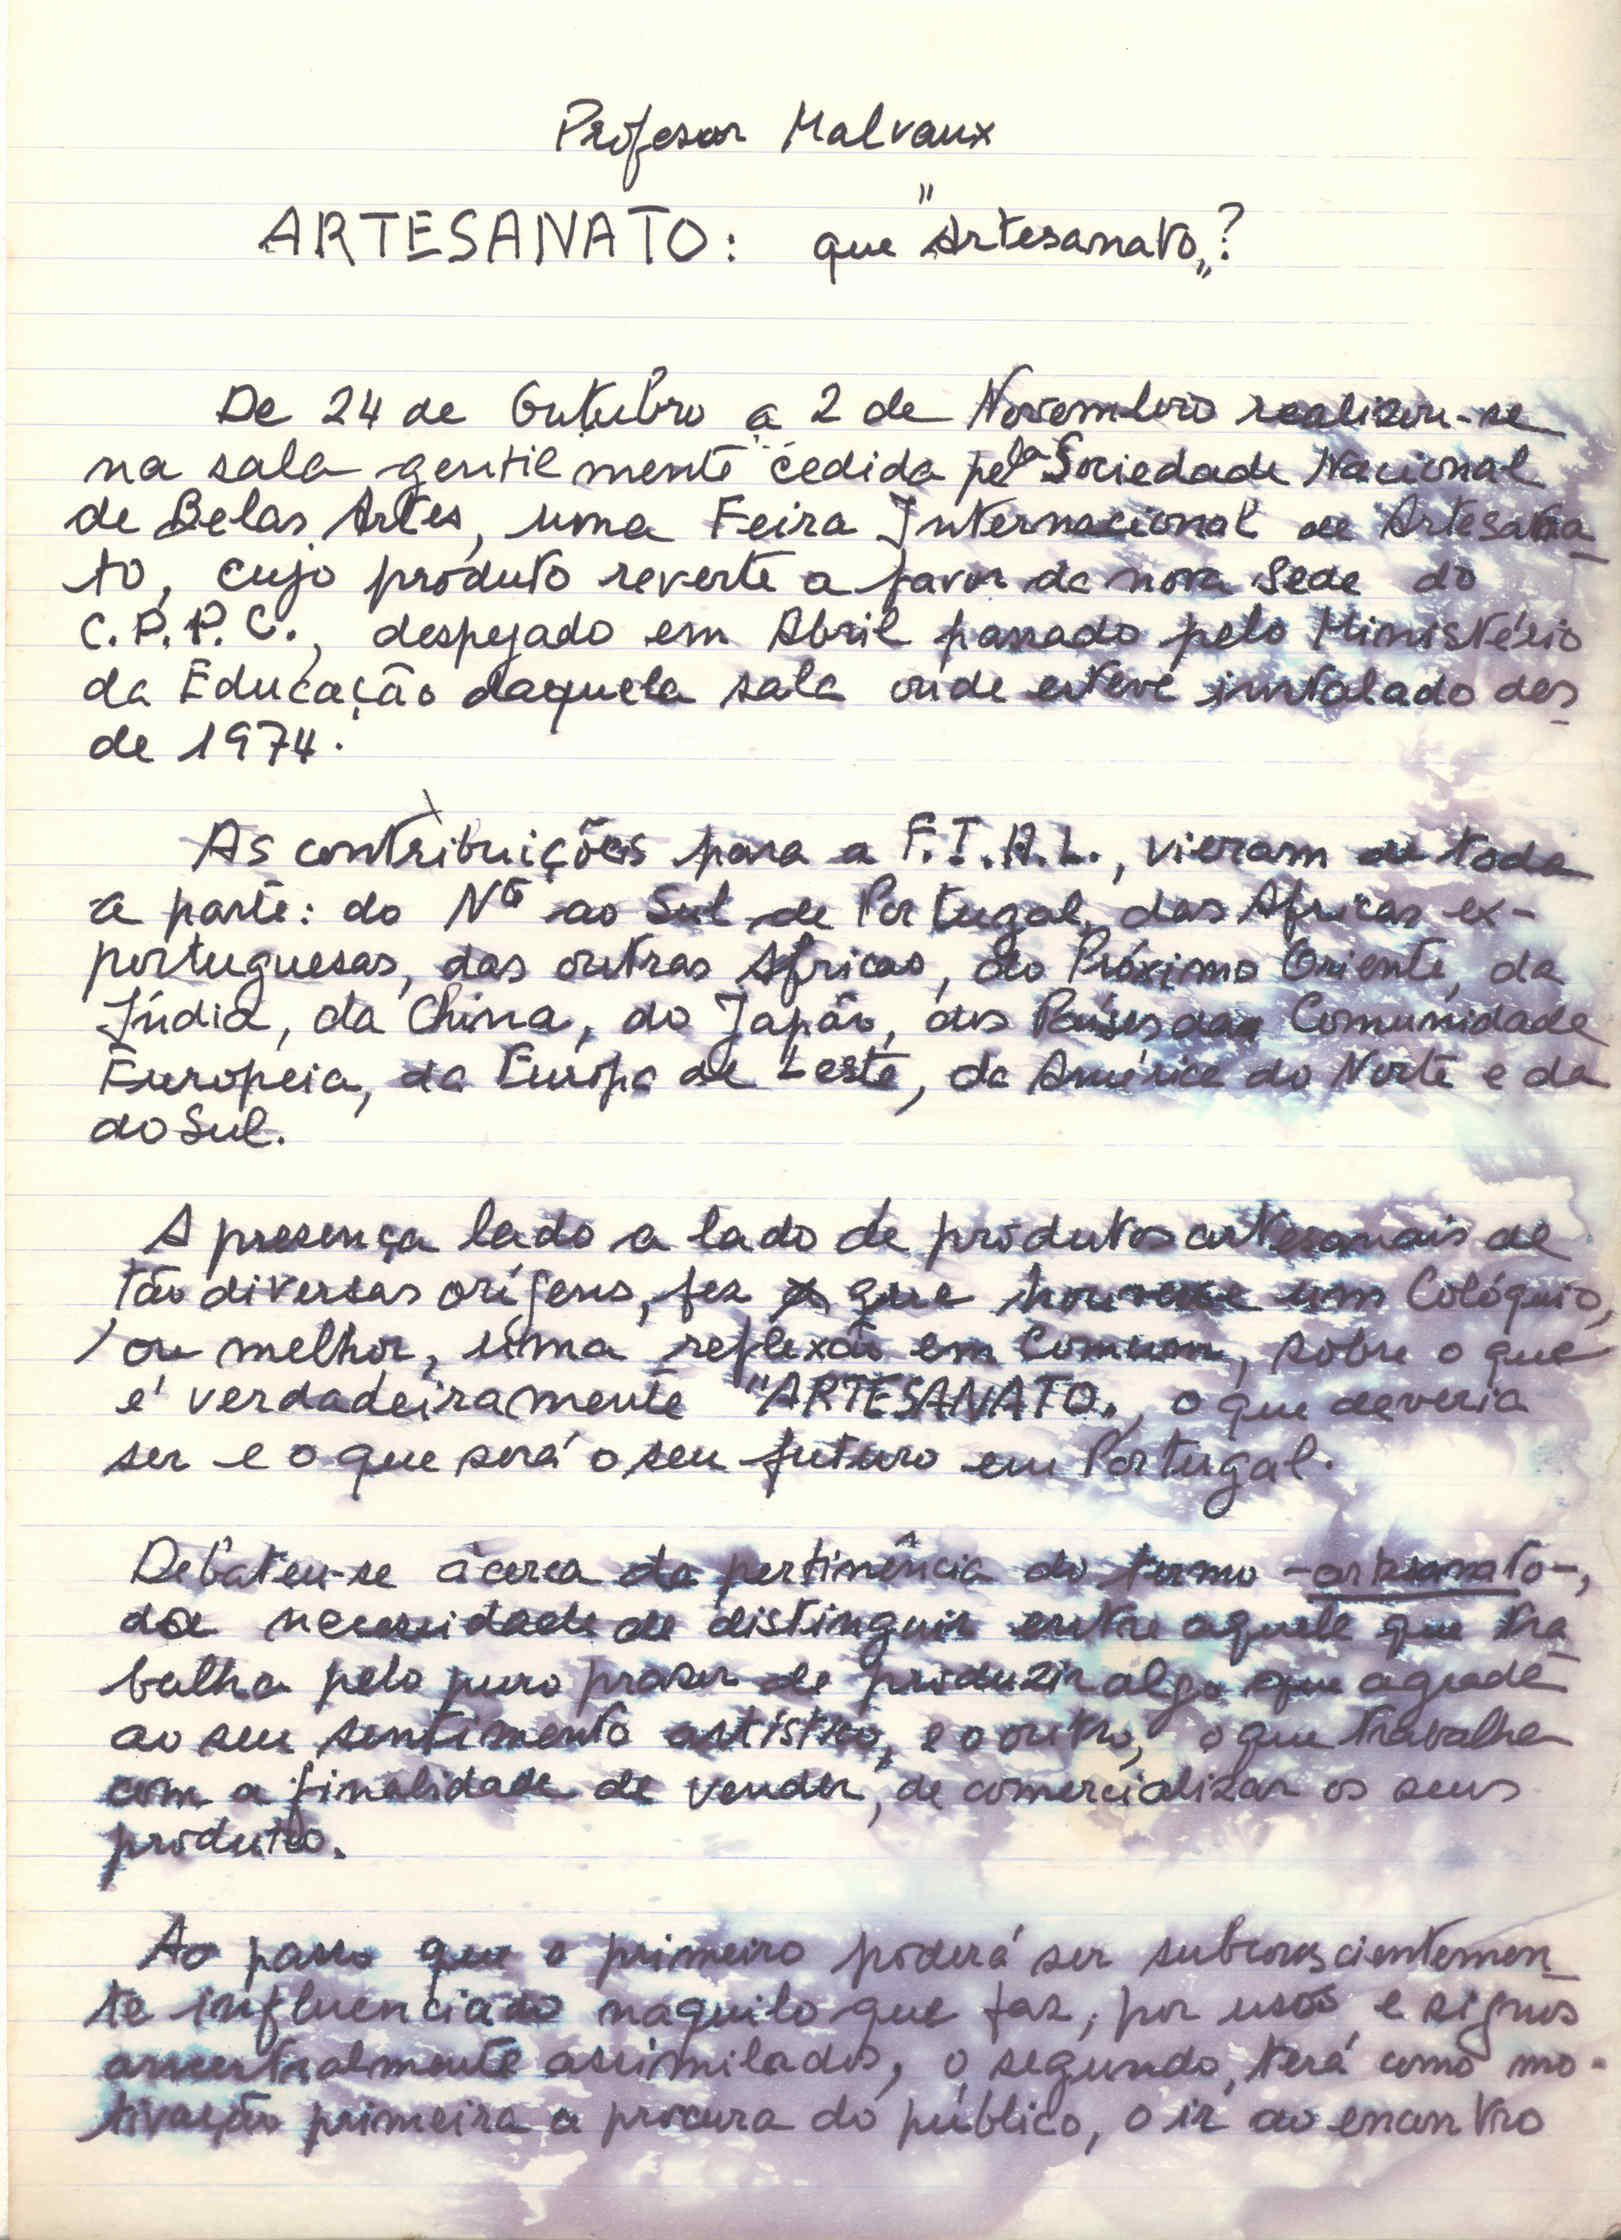 Profesor Malvaux
ARTESANATO: que "Artesanato"?
De 24 de Outubro a 2 de Novembro realizou-se
na sala gentilmente cedida pela Sociedade Nacional
de Belas Artes, uma Feira Internacional de Artesana-
to, cujo produto reverte a favor da nova Sede do
C.P.P.C., despejado em Abril passado pelo Ministério
da Educação daquela sala onde esteve instalado des-
de 1974.
As contribuições para a F.I.A.L., vieram de toda
a parte: do Nte ao Sul de Portugal, das Africas ex-
portuguesas, das outras Africas, do Próximo Oriente, da
Índia, da China, do Japão, dos Países da Comunidade
Europeia, da Europa de Leste, da América do Norte e da
do Sul.
A presença lado a lado de produtos artesanais de
tão diversas orígens, fez que houvesse um Colóquio,
ou melhor, uma reflexão em Comum, sobre o que
é verdadeiramente "ARTESANATO", o que deveria
ser e o que será o seu futuro em Portugal.
Debateu-se àcerca da pertinência do termo -artesanato-,
da necessidade de distinguir entre aquele que tra-
balha pelo puro prazer de produzir algo que agrade
ao seu sentimento artístico, e o outro, o que trabalha
com a finalidade de vender, de comercializar os seus
produtos.
Ao passo que o primeiro poderá ser subconscientemen-
te influenciado naquilo que faz, por usos e signos
ancestralmente assimilados, o segundo, terá como mo-
tivação primeira a procura do público, o ir ao encontro